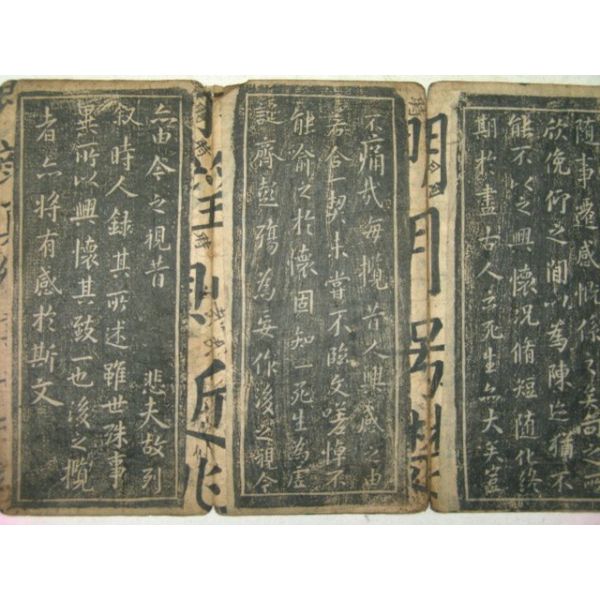 隨事遷感慨係之矣向之所
欣俛仰之間以為陳迹猶不
能不以之興懷況脩短隨化終
期於盡古人云死生亦大矣豈
明月
不痛哉每攬昔人興感之由
若合一契未嘗不臨文嗟悼不
能喻之於懷固知一死生為虛
誕齊彭殤為妄作後之視今
亦由今之視昔 悲夫故列
叙時人録其所述雖世殊事
異所以興懷其致一也後之攬
者亦將有感於斯文